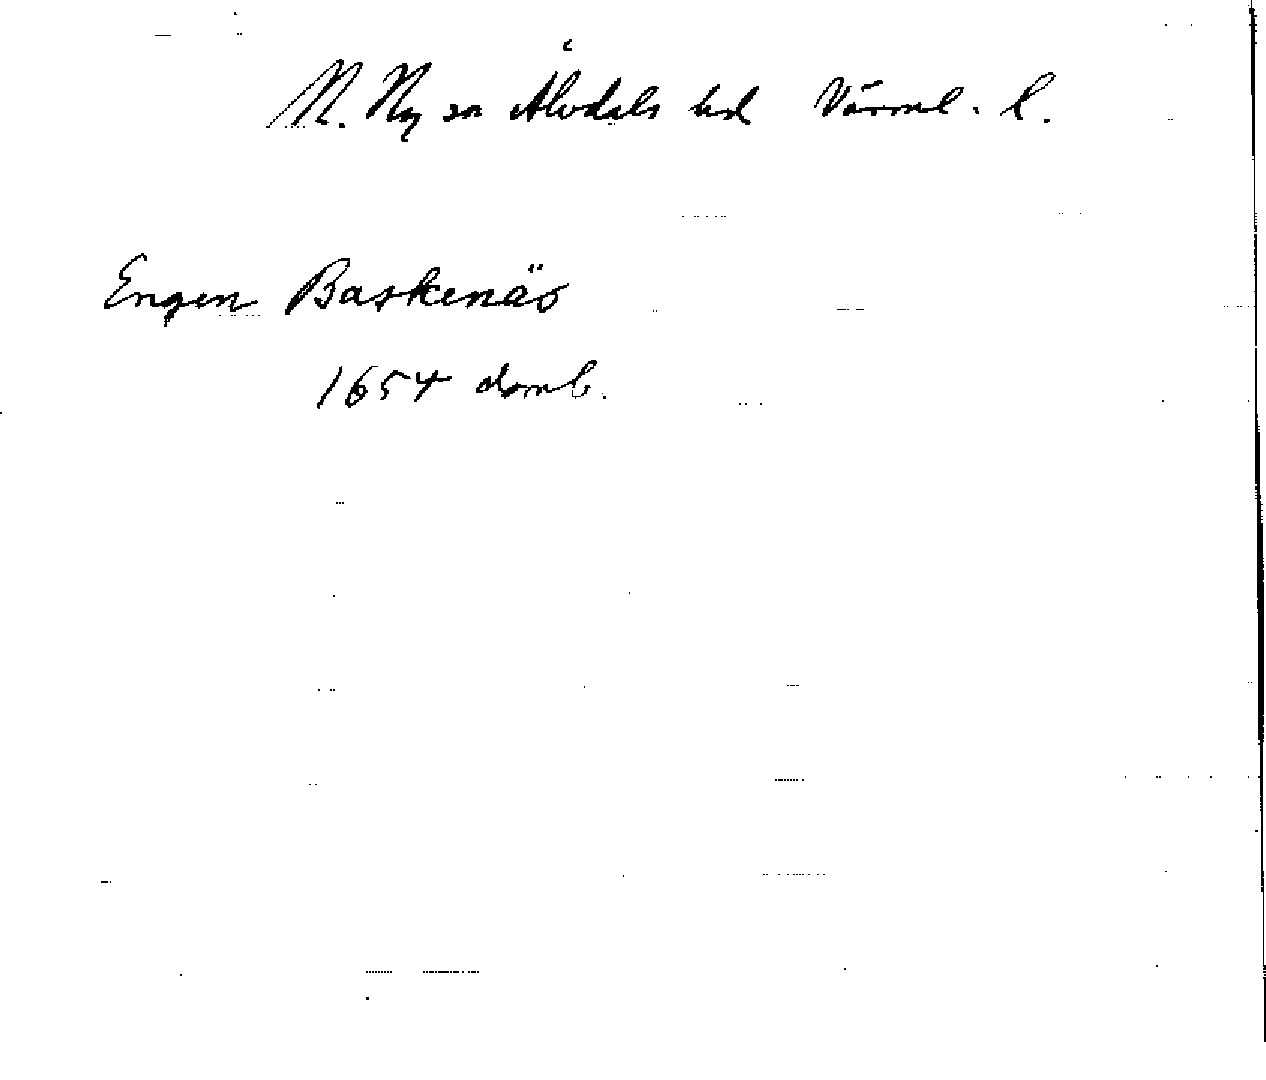 N. Ny sn Älvdals hd Värml. l.
Engen Baskenäs
1654 domb.